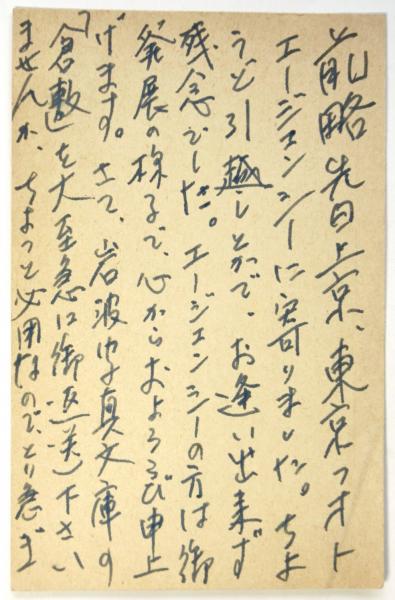 前略 先日上京、東京フオト
エージエンシーに寄りました。ちよ
うど引越しとかで、お逢い出来ず
残念でした。エージエンシーの方は御
発展の様子で、心からおよろこび申上
げます。さて、岩波写真文庫の
「倉敷」を大至急に御返送下さい
ませんか、ちよつと必用なので、とり急ぎ